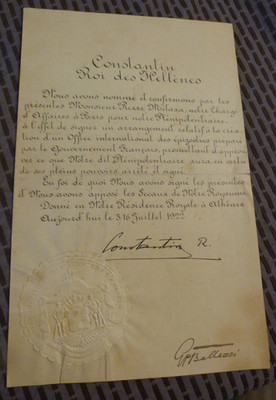 Constantin
Roi des Hellènes
Nous avons nommé et confirmons par les
présentes Monsieur Pierre Metaxa, notre Chargé
d'Affaires à Paris pour notre Plénipotentiaire
à l'effet de signer un arrangement relatif à la créa-
tion d'un Office international des épizooties préparé
par le Gouvernement Français, promettant d'approu-
ver ce que Notre dit Plénipotentiaire aura en vertu
de ses pleins pouvoirs arrêté et signé.
En foi de quoi Nous avons signé les présentes
et Nous avons apposé les Sceaux de Notre Royaume
Donné en Notre Résidence Royale à Athènes
Aujourd'hui le 3/16 Juillet 1922
Constantin R.